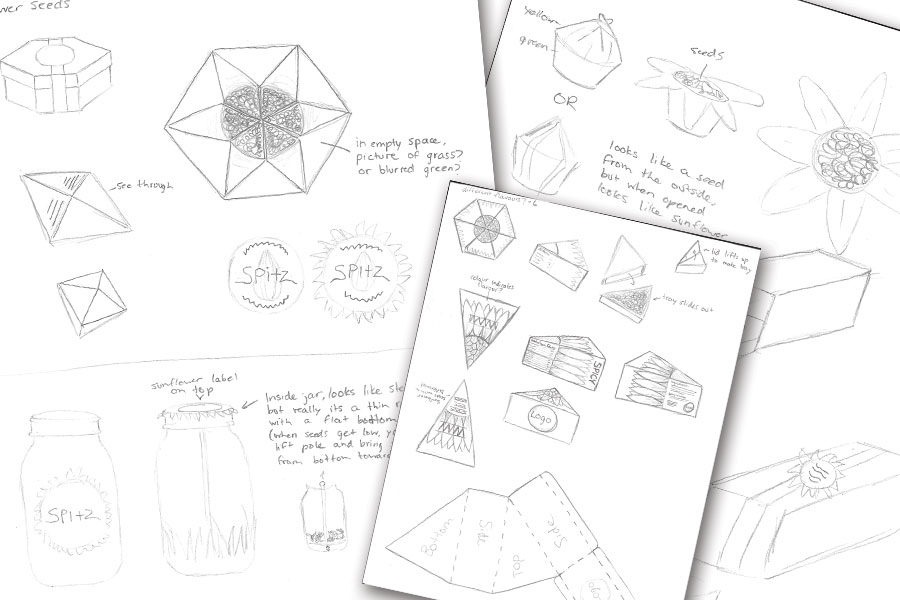 wer Seeds
see through
in empty space,
picture of grass?
or blurred green?
SPitz
SPitz
sunflower label
on top
Inside jar, looks like ste
but really its a thin
with a flat bottom
(when seeds get low,
lift pole and bring
from bottom towar
SPitz
yellow
green
OR
seeds
looks like a seed
from the outside,
but when opened
looks like sunflower
different flavours
colour indicates
lid lifts up
to make tray
tray slides out
SPICY
Logo
Bottom
Side
Top
Side
Logo